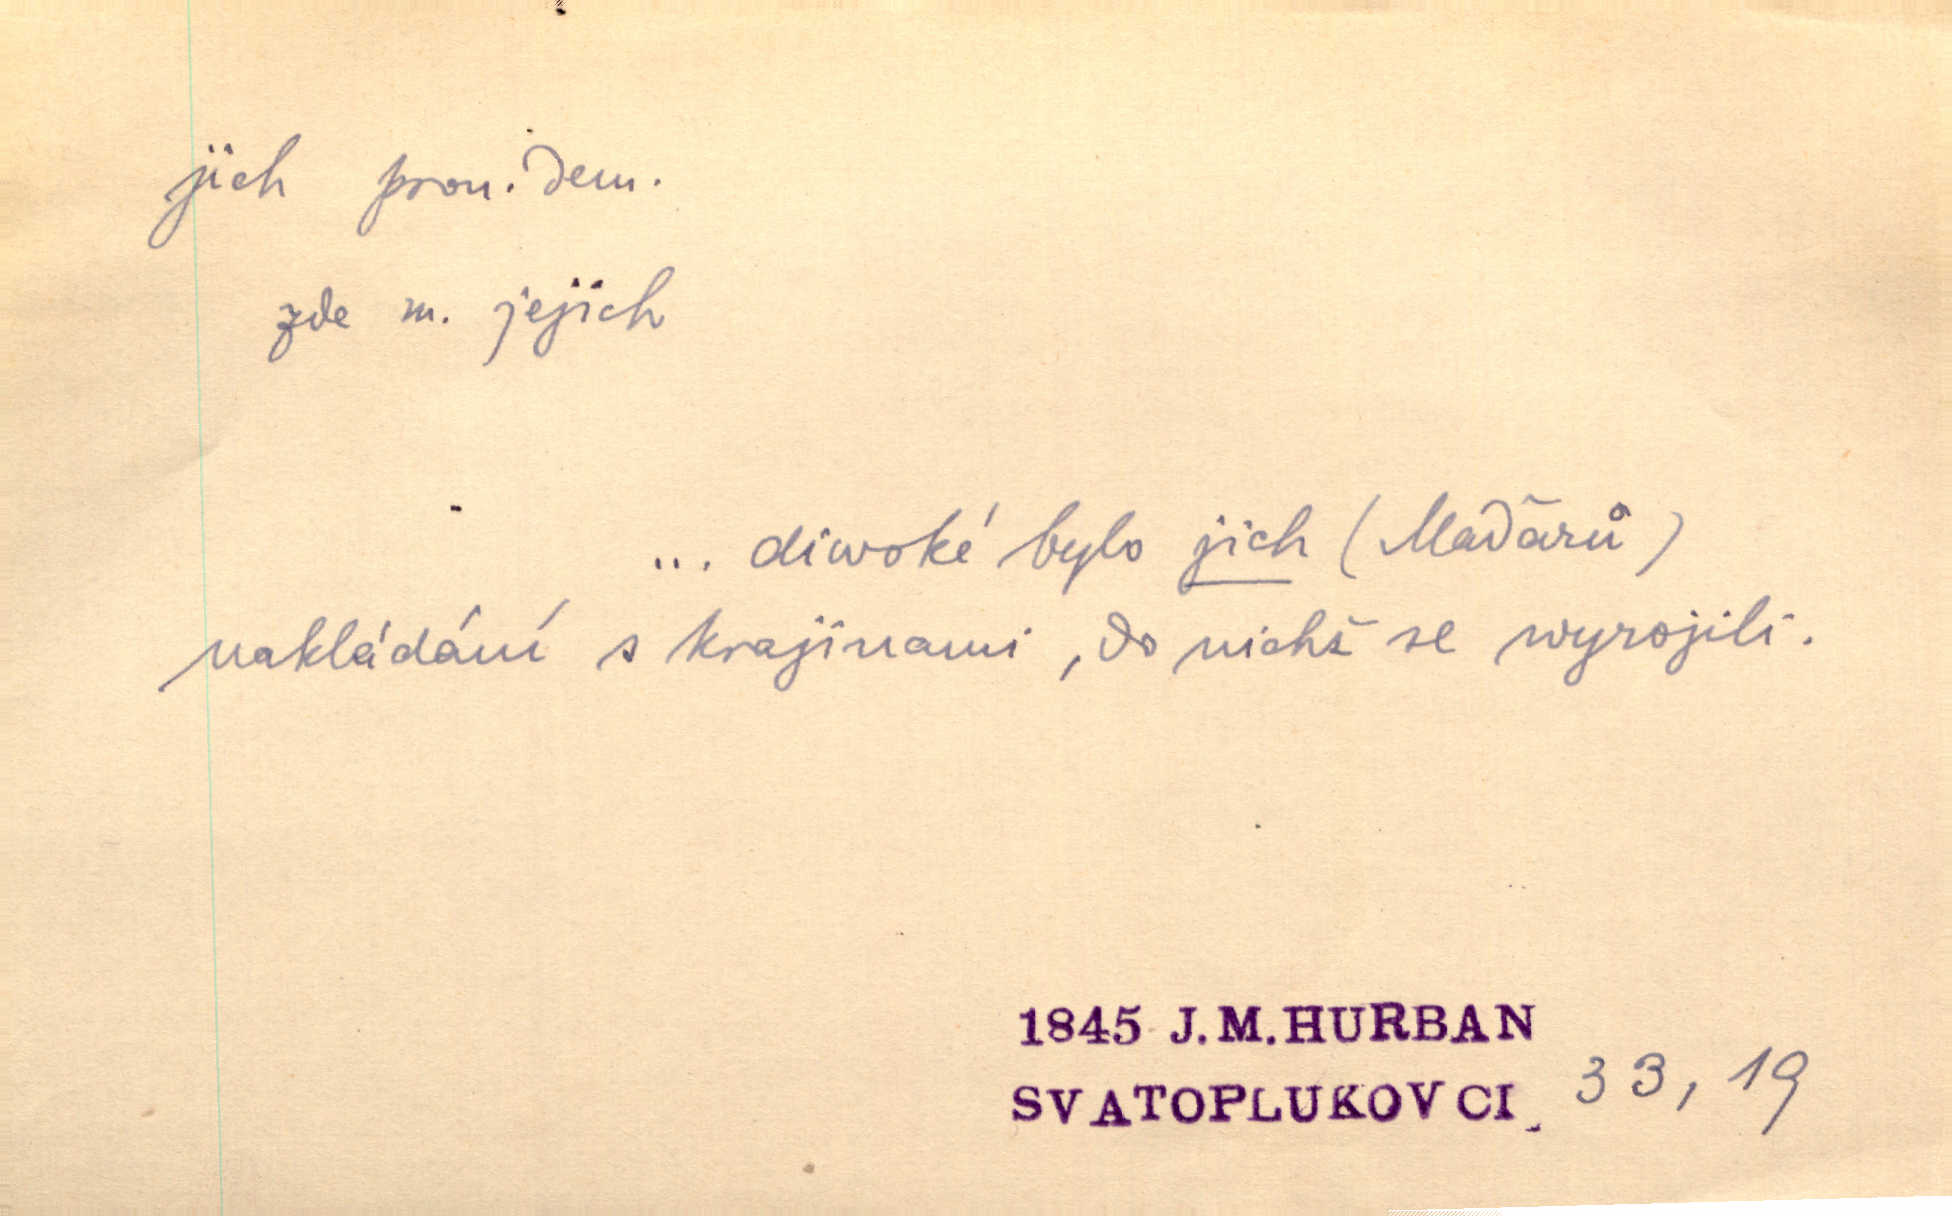 jich pron. dem.
zde m. jejich
... diwoké bylo jich (Maďarů)
nakládání s krajinami, do nichž se wyrojili.
1845 J.M.HURBAN
SVATOPLUKOVCI 33, 19